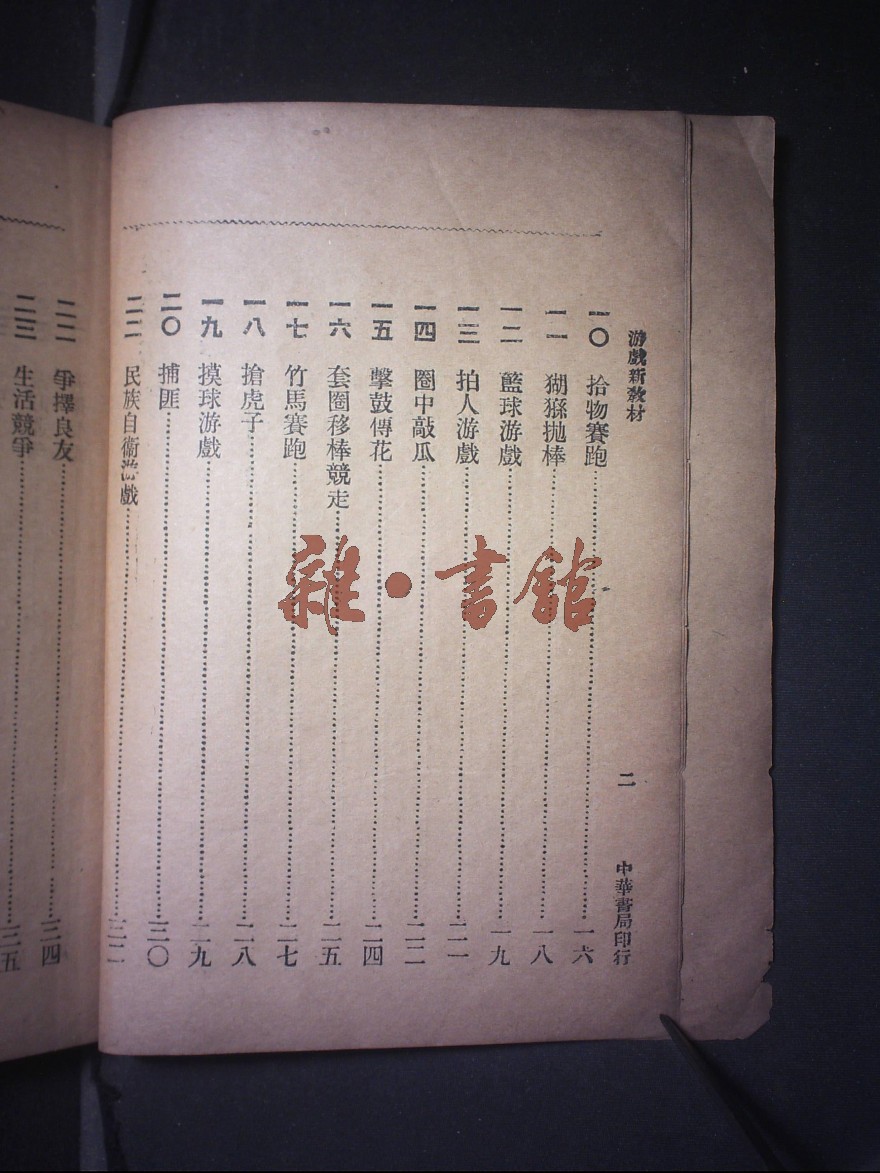 游戲新教材 二 中華書局印行
一〇 拾物賽跑……一六
一一 猢猻拋棒……一八
一二 籃球游戲……一九
一三 拍人游戲……二一
一四 圈中敲瓜……二二
一五 擊鼓傳花……二四
一六 套圈移棒競走……二五
一七 竹馬賽跑……二七
一八 搶虎子……二八
一九 摸球游戲……二九
二〇 捕匪……三〇
二一 民族自衛游戲……三二
二二 爭擇良友……三四
二三 生活競爭……三五
雜·書館